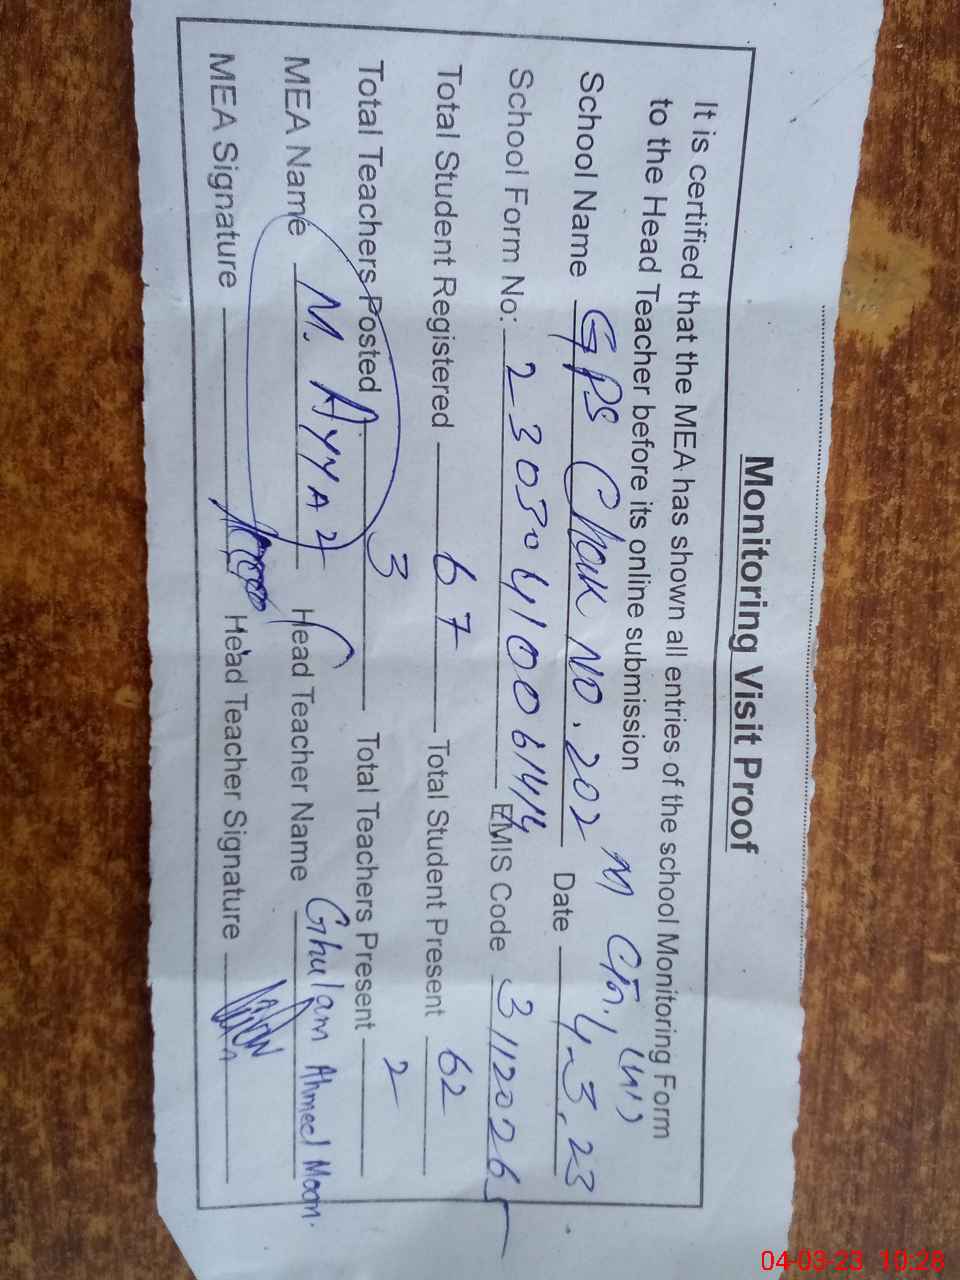 Monitoring Visit Proof
It is certified that the MEA has shown all entries of the school Monitoring Form
to the Head Teacher before its online submission
School Name GPS Chak NO. 202 M Date 4-3.23
School Form No: EMIS Code 31120265
Total Student Registered 67 Total Student Present 62
Total Teachers Posted 3 Total Teachers Present 2
MEA Name M. Ayyaz Head Teacher Name Ghulam Ahmed Moon.
MEA Signature Head Teacher Signature
04-03-23 10:28